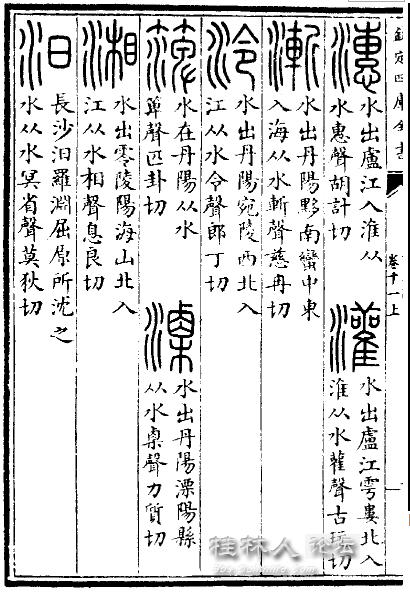 欽定四庫全書
卷十一上
潓
水出廬江入淮从
水惠聲胡計切
灌
水出廬江雩婁北入
淮从水雚聲古玩切
漸
水出丹陽黟南蠻中東
入海从水斬聲慈冉切
泠
水出丹陽宛陵西北入
江从水令聲郎丁切
水在丹陽从水
箄聲匹卦切
溧
水出丹陽溧陽縣
从水㮚聲力質切
湘
水出零陵陽海山北入
江从水相聲息良切
汨
長沙汨羅淵屈原所沈之
水从水冥省聲莫狄切
桂林人论坛